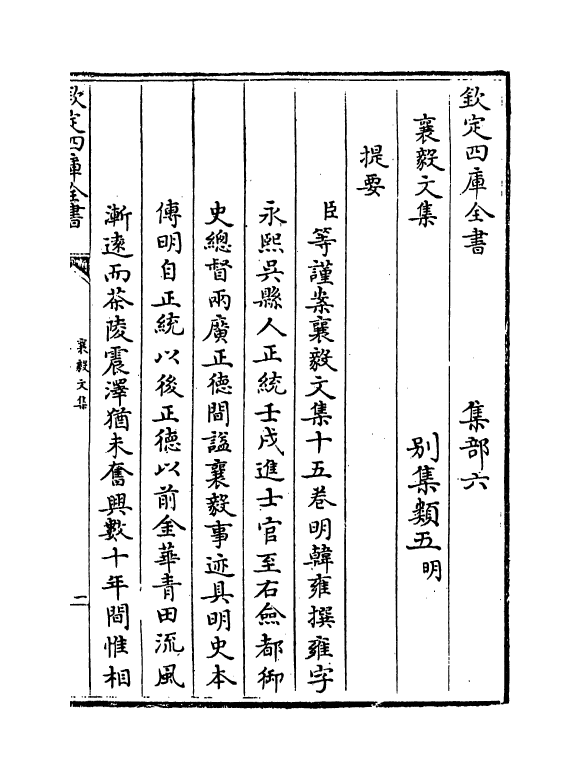 欽定四庫全書　集部六
襄毅文集　别集類五明
提要
臣等謹案襄毅文集十五卷明韓雍撰雍字
永熙吳縣人正統壬戌進士官至右僉都御
史總督兩廣正德間諡襄毅事迹具明史本
傳明自正統以後正德以前金華青田流風
漸逺而茶陵震澤猶未奮興數十年間惟相
欽定四庫全書
襄毅文集
二